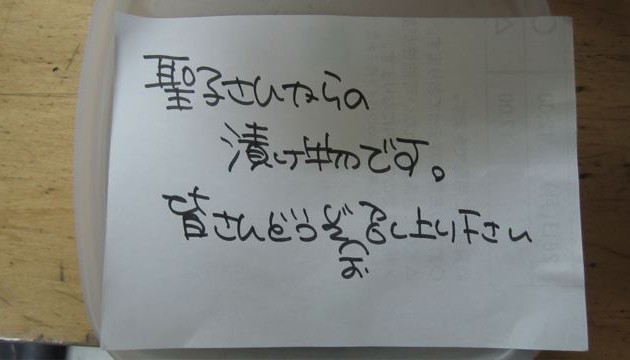 聖子さんからの
漬け物です。
皆さんどうぞ召し上り下さい